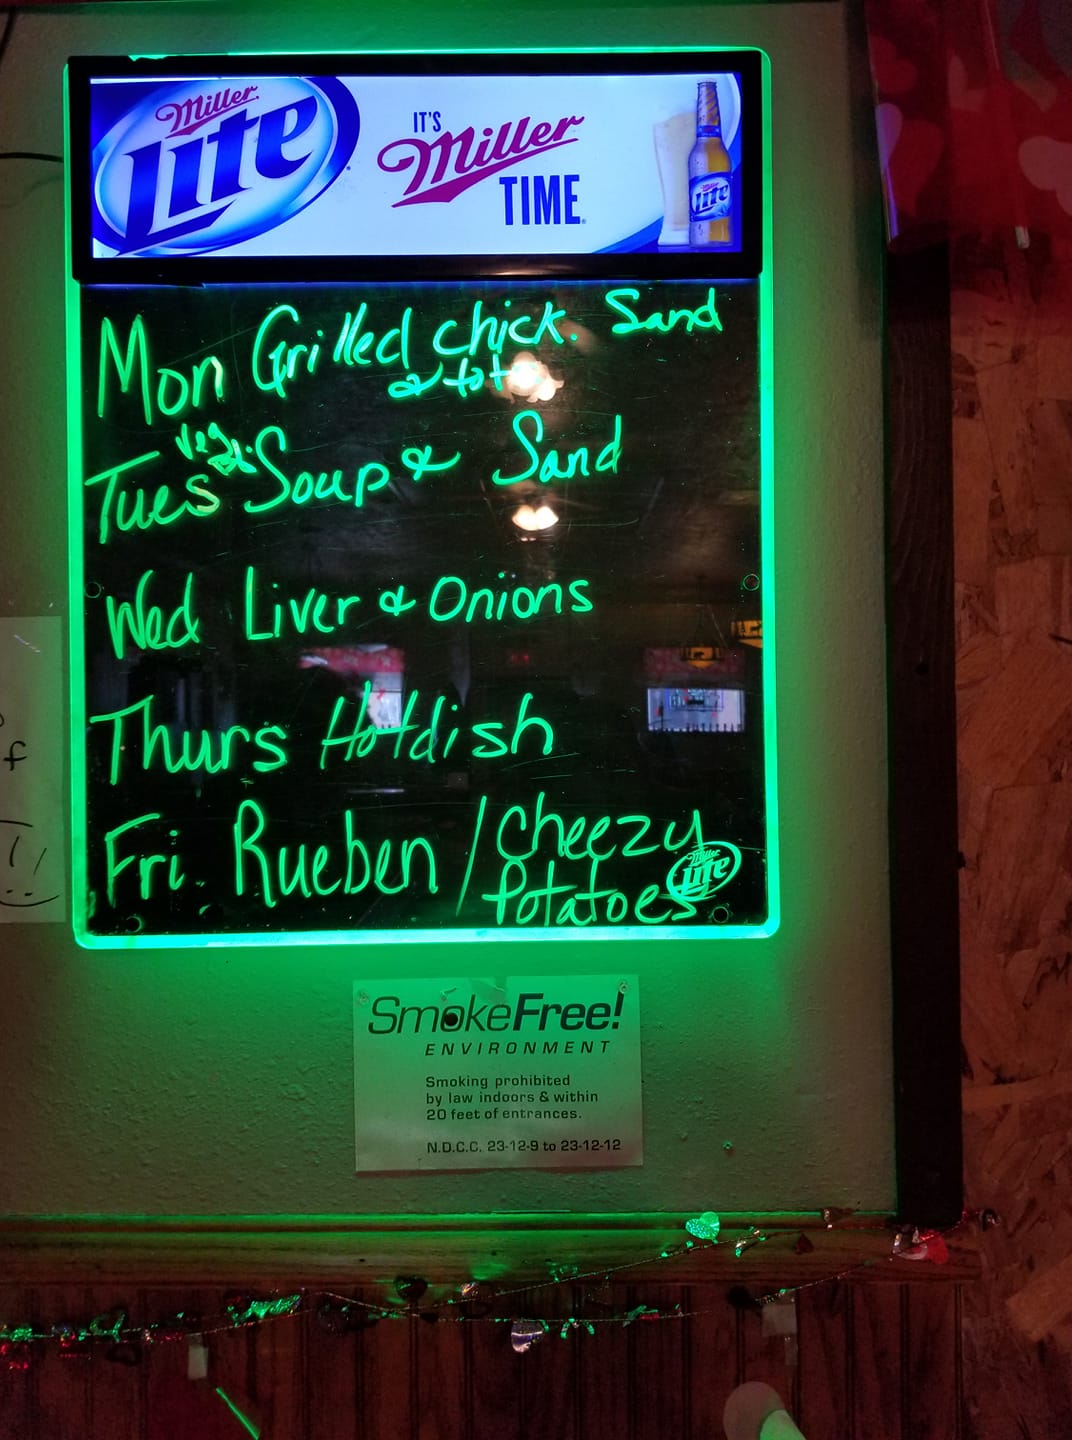 Miller
Lite
IT'S
Miller
TIME
Lite
Mon Grilled chick. Sand
& tots
Veg.
Tues Soup & Sand
Wed Liver & Onions
Thurs Hotdish
Fri. Rueben / Cheezy
Potatoes
Miller
Lite
SmokeFree!
ENVIRONMENT
Smoking prohibited
by law indoors & within
20 feet of entrances.
N.D.C.C. 23-12-9 to 23-12-12